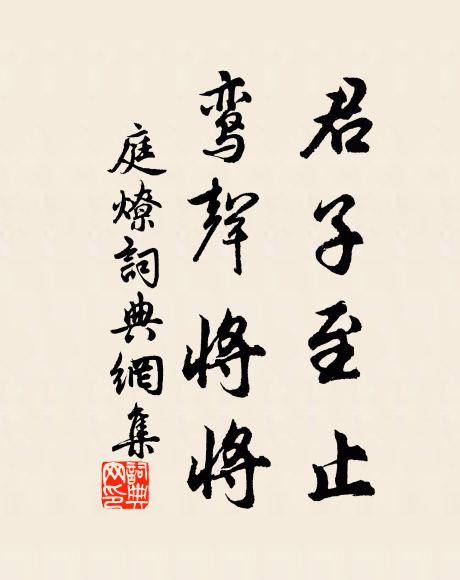 君子至止
鸾聲将将
庭燎詞典網集
詞典網印